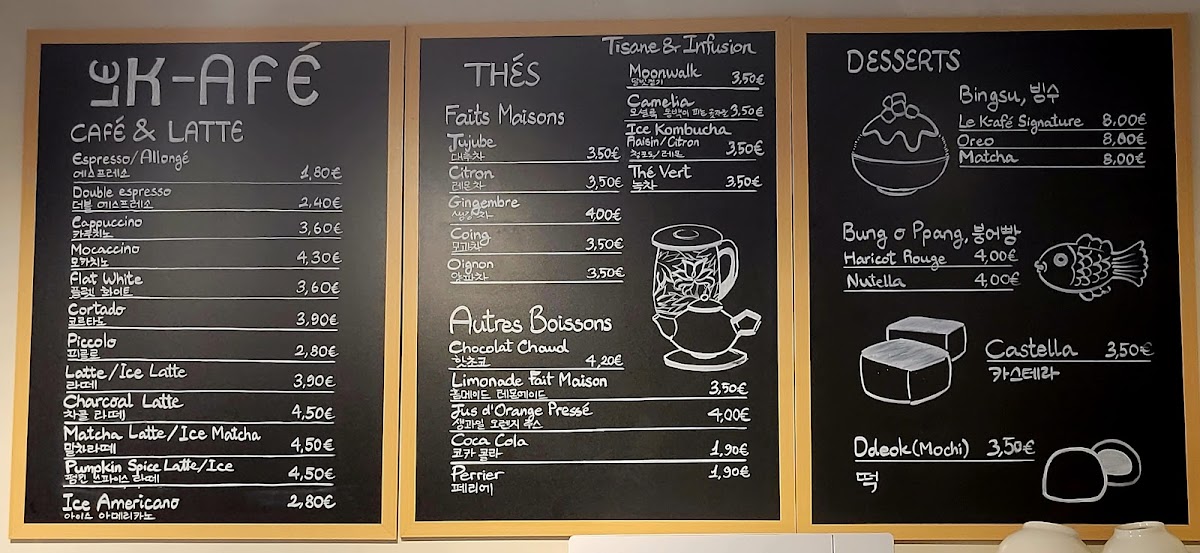 LE K-AFÉ
CAFÉ & LATTE
Espresso/Allongé
에스프레소 1,80€
Double espresso
더블 에스프레소 2,40€
Cappuccino 3,60€
카푸치노
Mocaccino
모카치노 4,30€
Flat White
플랫 화이트 3,60€
Cortado
코르타도 3,90€
Piccolo
피콜로 2,80€
Latte/Ice Latte
라떼 3,90€
Charcoal Latte
차콜 라떼 4,50€
Matcha Latte/Ice Matcha
말차라떼 4,50€
Pumpkin Spice Latte/Ice
펌킨 스파이스 라떼 4,50€
Ice Americano 2,80€
아이스 아메리카노
THÉS
Faits Maisons
Jujube
대추차 3,50€
Citron
레몬차 3,50€
Gingembre
생강차 4,00€
Coing
모과차 3,50€
Oignon
양파차 3,50€
Tisane & Infusion
Moonwalk 3,50€
달빛걷기
Camelia
동백이 피는 3,50€
Ice Kombucha
Raisin/Citron 3,50€
청포도/레몬
Thé Vert
녹차 3,50€
Autres Boissons
Chocolat Chaud
핫초코 4,20€
Limonade Fait Maison
홈메이드 레몬에이드 3,50€
Jus d'Orange Pressé
생과일 오렌지 쥬스 4,00€
Coca Cola
코카 콜라 1,90€
Perrier 1,90€
페리에
DESSERTS
Bingsu, 빙수
Le K-afé Signature 8,00€
Oreo 8,00€
Matcha 8,00€
Bung o Ppang, 붕어빵
Haricot Rouge 4,00€
Nutella 4,00€
Castella 3,50€
카스테라
Ddeok (Mochi) 3,50€
떡